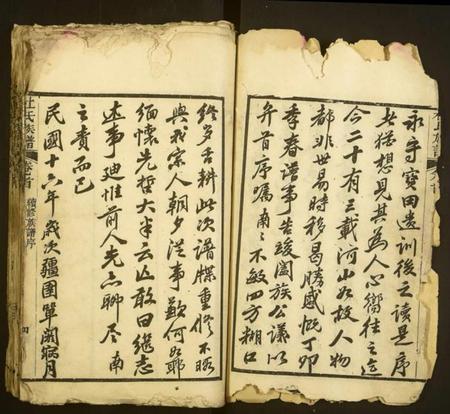 永守寶田遺訓後之讀是序
者猶想見其為人心嚮往之迄
今二十有三載河山如故人物
都非世易時移曷勝感慨丁卯
季春譜事告竣闔族公議以
弁首序囑南南不敏四方糊口
終歲舌耕此次譜牒重修不暇
與我宗人朝夕從事歉何如耶
緬懷先哲大半云亡敢曰繼志
述事迪惟前人光亦聊尽南
之責而已
民國十六年歲次疆圉單閼病月
杜氏族譜
卷首
續修族譜序
四